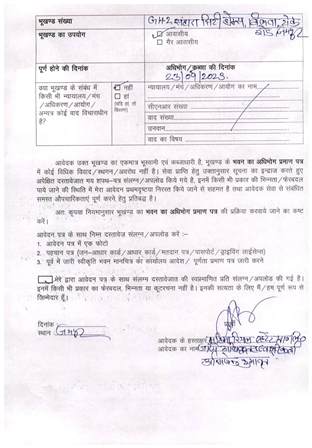 भूखण्ड संख्या GH2
भूखण्ड का उपयोग
आवासीय
गैर आवासीय
पूर्ण होने की दिनांक
अधिभोग/कब्जा की दिनांक
23/09/2023.
क्या भूखण्ड के संबंध में किसी भी न्यायालय/मंच/अधिकरण/आयोग/अन्यत्र कोई वाद विचाराधीन है?
नहीं
हां
न्यायालय/मंच/अधिकरण/आयोग का नाम
सीएनआर संख्या
वाद संख्या
उनवान
वाद का विषय
आवेदक उक्त भूखण्ड का एकमात्र भूस्वामी एवं कब्जाधारी है, भूखण्ड के भवन का अधिभोग प्रमाण पत्र
में कोई विधिक विवाद/स्थगन/अवरोध नहीं है। सेवा प्राप्ति हेतु उक्तानुसार सूचना का इन्द्राज करते हुए
अपेक्षित दस्तावेजात मय शपथ-पत्र संलग्न/अपलोड किये गये है, इनमें किसी भी प्रकार की भिन्नता/फेरबदल
पाये जाने की स्थिति में मेरा आवेदन प्रथमदृष्टया निरस्त किये जाने से सहमत है तथा आवेदक सेवा से संबंधित
समस्त औपचारिकताएं पूर्ण करने हेतु प्रतिबद्ध है।
अतः कृपया नियमानुसार भूखण्ड का भवन का अधिभोग प्रमाण पत्र की प्रक्रिया करवाये जाने का कष्ट
करें।
आवेदन पत्र के साथ निम्न दस्तावेज संलग्न/अपलोड करें :-
1. आवेदन पत्र में एक फोटो
2. पहचान पत्र (जन-आधार कार्ड/आधार कार्ड/मतदान पत्र/पासपोर्ट/ड्राइविंग लाईसेन्स)
3. पूर्व में जारी स्वीकृति भवन मानचित्र का कार्यालय आदेश/पूर्णता प्रमाण पत्र जारी करने
मेरे द्वारा आवेदन पत्र के साथ समस्त दस्तावेजात की स्वप्रमाणित प्रति संलग्न/अपलोड की गई है।
इनमें किसी भी प्रकार का फेरबदल, भिन्नता या कूटरचना नहीं है। इनकी सत्यता के लिए मैं/हम पूर्ण रूप से
जिम्मेदार हूँ।
दिनांक :
स्थान GH2
आवेदक के हस्ताक्षर
आवेदक का नाम